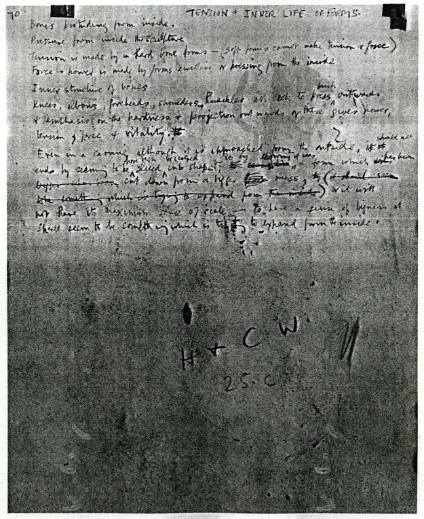 90 TENSION & INNER LIFE OF FORMS.
Bones protruding from inside.
Pressure from inside the sculpture
Tension is made by a hard bone forms – (soft forms cannot make tension & force)
Force & power is made by forms swelling or pressing from the inside
Inner structure of bones
Knees, elbows, foreheads, shoulders, knuckles all seem to press, push outwards
& emphasis on the hardness & projection outwards of these gives power,
tension & force & vitality.
Even in a carving although it is approached from the outside, it should
ends by seeming to be into shape, from which
cut down from a bigger mass, it will
not have its maximum of scale, to have a sense of bigness it
should seem to be something which is trying to expand from the inside.
H + C W.
25. C